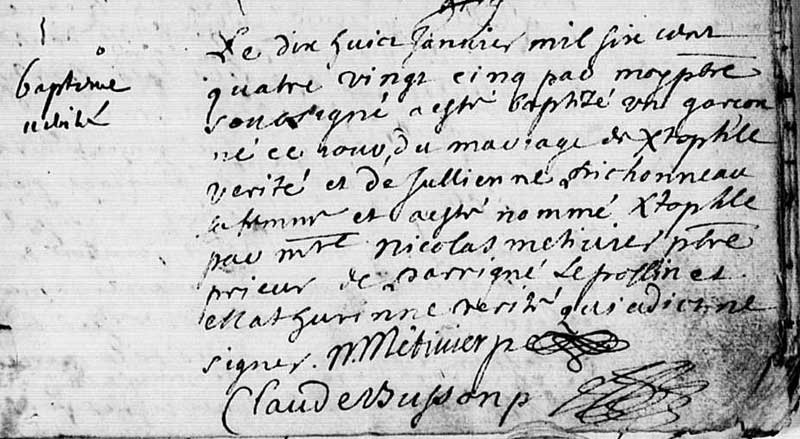 baptême
vérité
Le dix huict Janvier mil six cent
quatre vingt cinq par moy pbre
soussigné a esté baptizé un garcon
né ce jour, du mariage de Xtophle
verité et de Jullienne Trichonneau
sa femme et a esté nommé Xtophle
par mtre Nicolas metivier pbre
prieur de Parrigné Le poslin et
Mathurinne verité qui a dit ne
signer. N. Metivier p
Claude Busson p